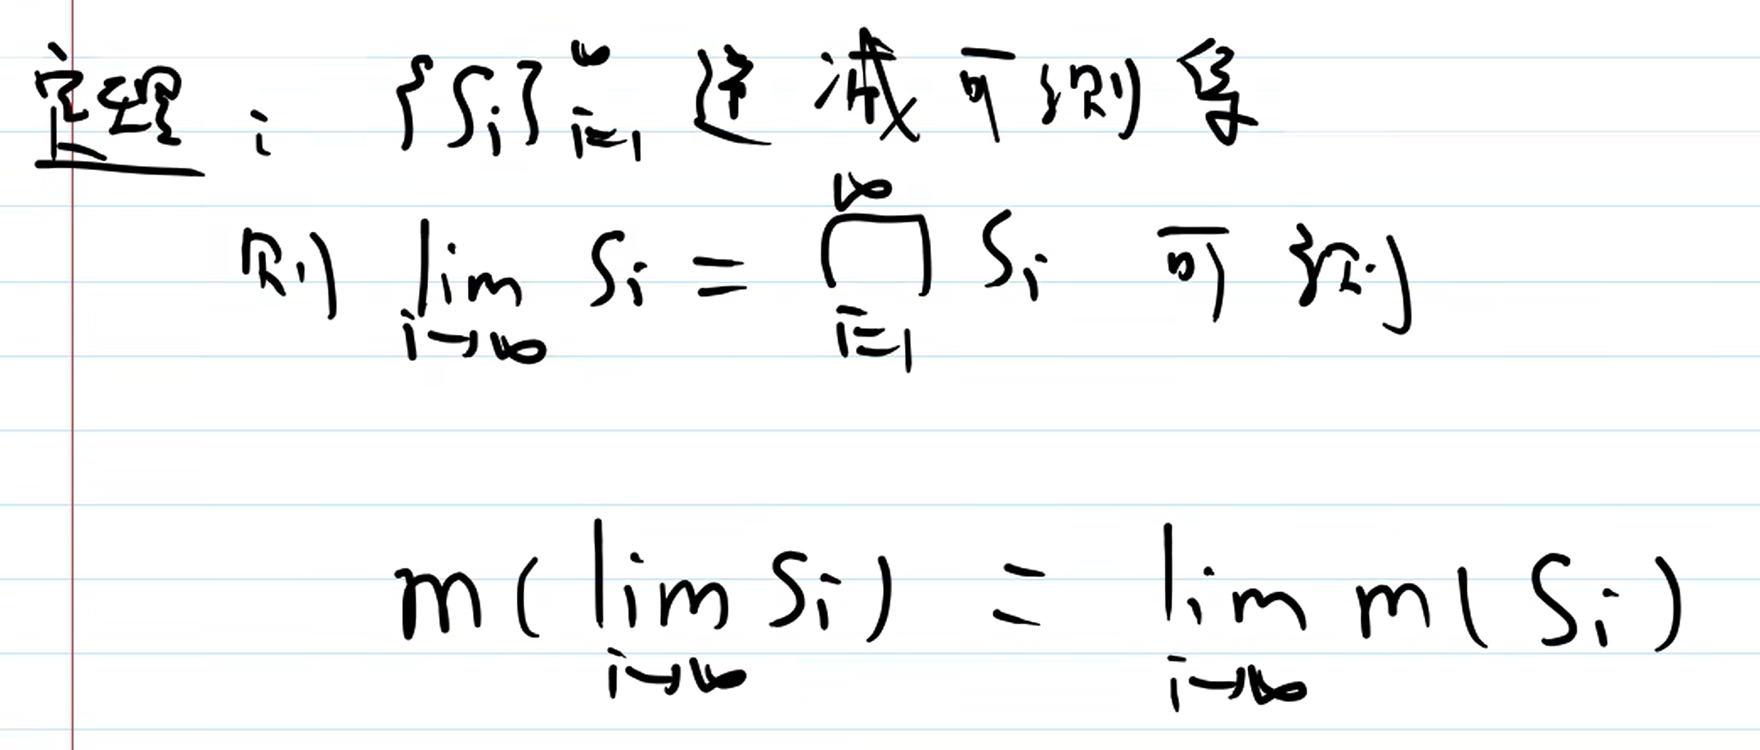 定理: {Si}∞i=1 递减可测集
则 lim i→∞ Si = ∩∞i=1 Si 可测
m(lim i→∞ Si) = lim i→∞ m(Si)